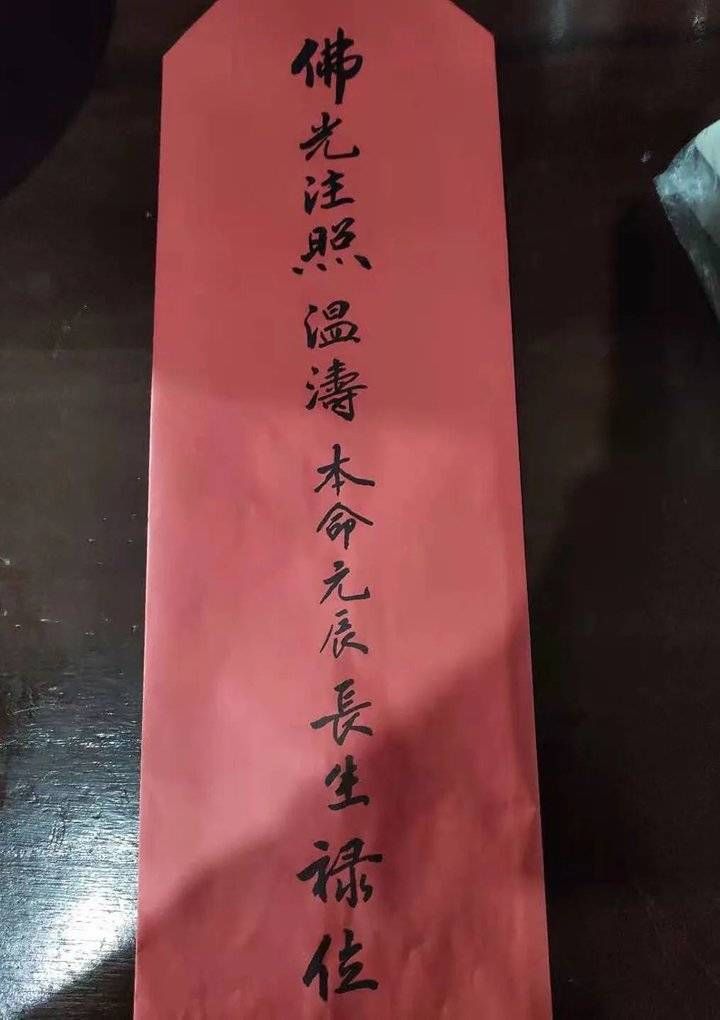 佛光注照溫濤本命元辰長生禄位